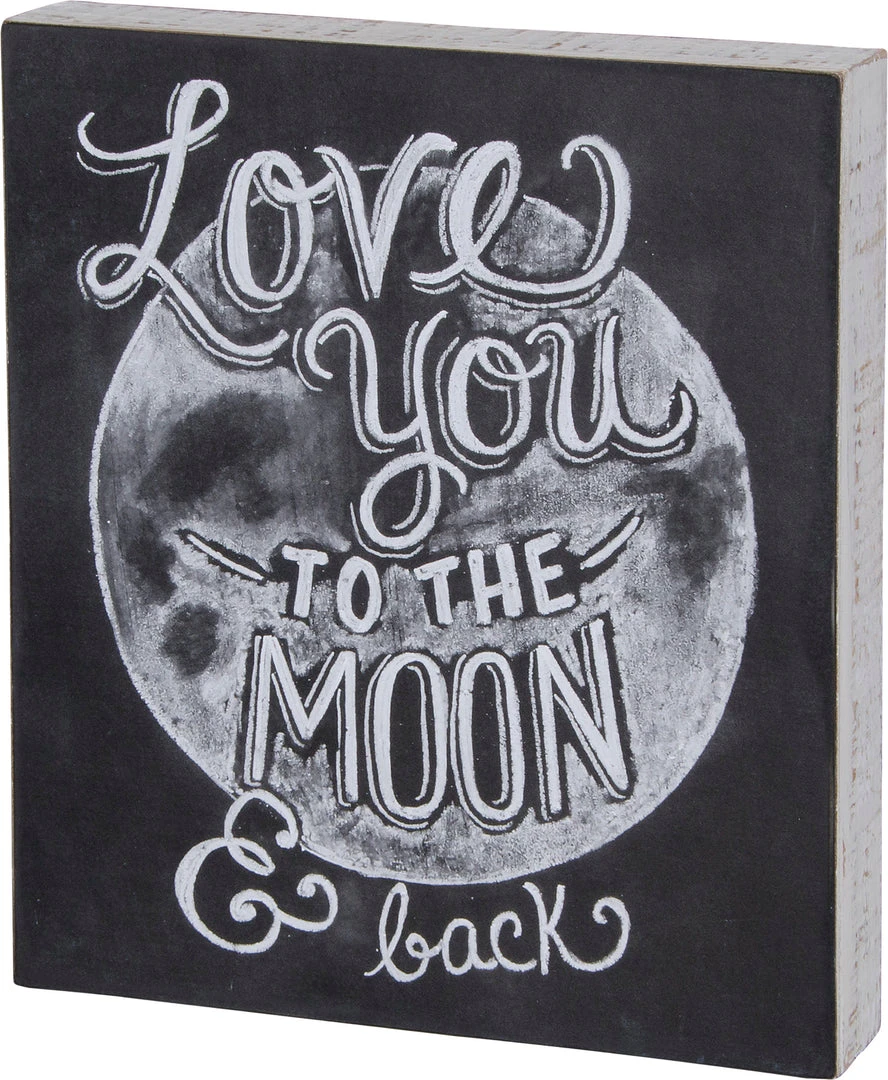 Love
you
TO THE
MOON
&
back